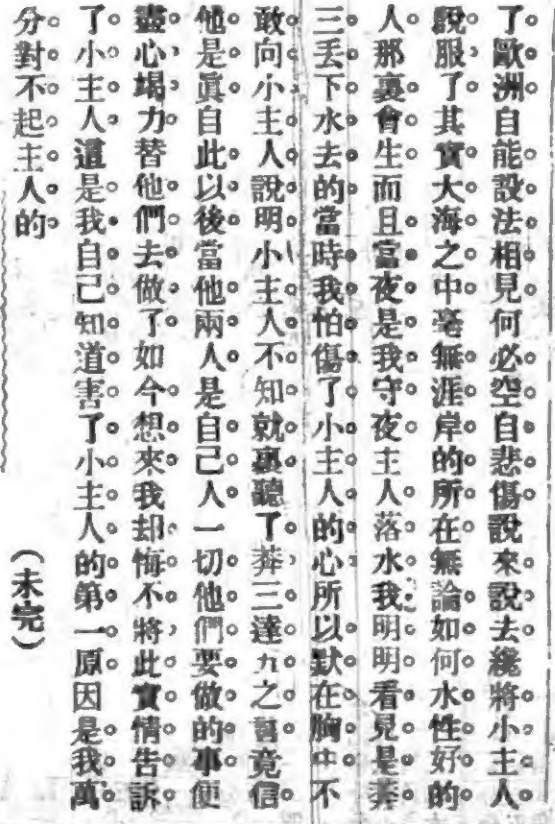 了歐洲自能設法相見何必空自悲傷說來說去纔將小主人
說服了其實大海之中毫無涯岸的所在無論如何水性好的
人那裏會生而且當夜是我守夜主人落水我明明看見是莽
三丟下水去的當時我怕傷了小主人的心所以默在胸中不
敢向小主人說明小主人不知就裏聽了莽三達九之言竟信
他是眞自此以後當他兩人是自己人一切他們要做的事便
盡心竭力替他們去做了如今想來我却悔不將此實情告訴
了小主人這是我自己知道害了小主人的第一原因是我萬
分對不起主人的
（未完）